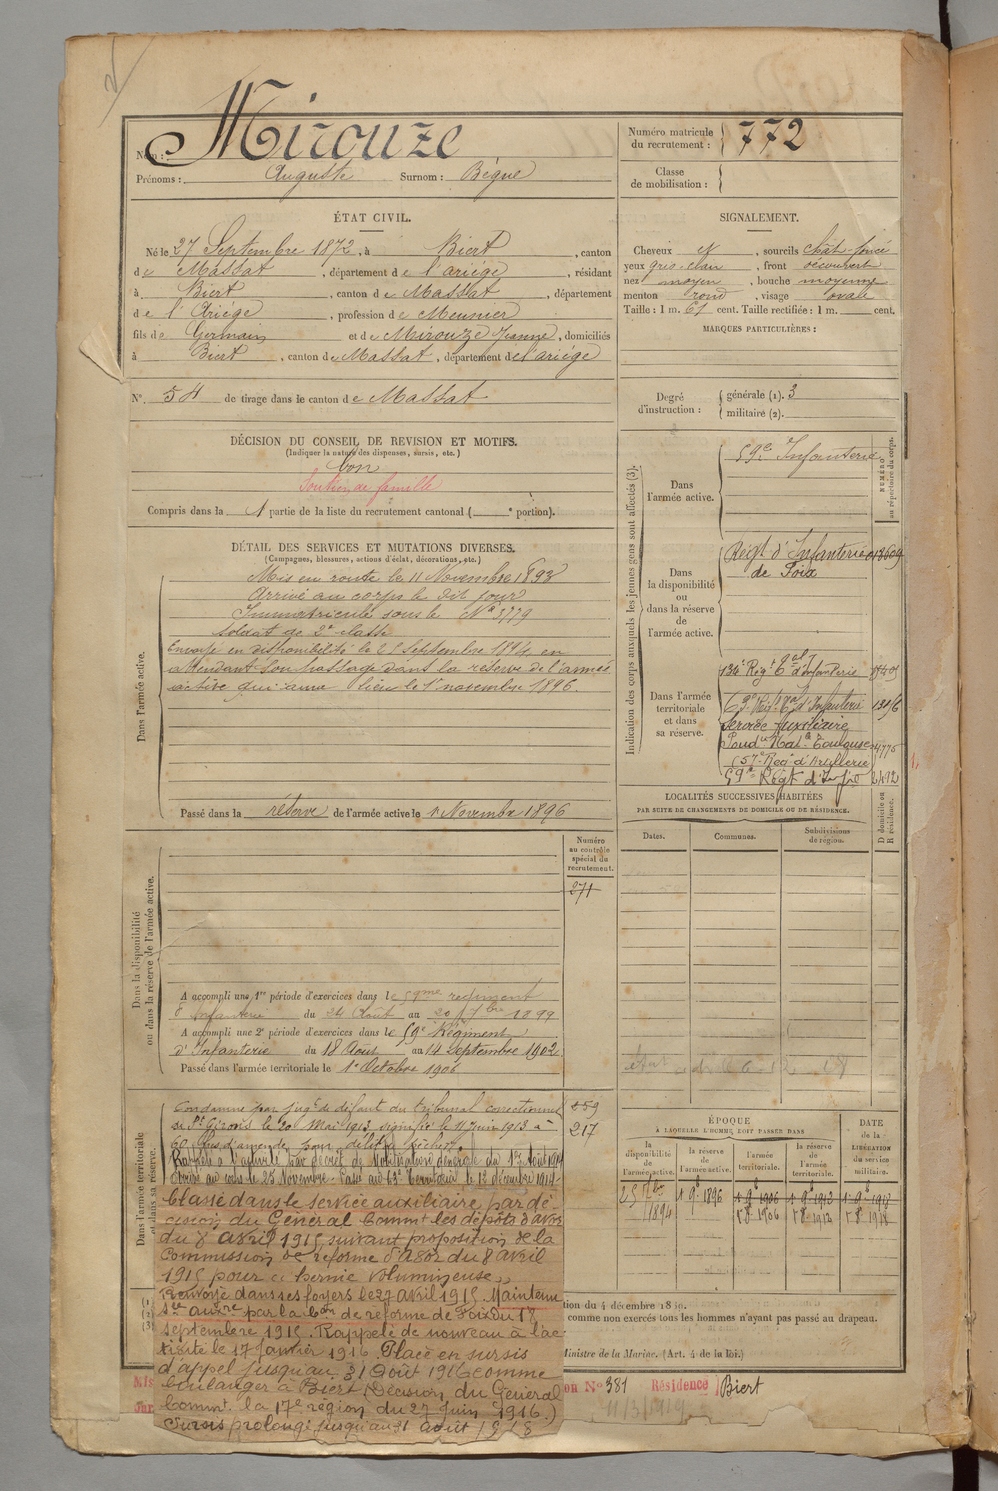 Nom : Mirouze
Prénoms : Auguste Surnom : Bégué
Numéro matricule du recrutement : 772
Classe de mobilisation :
ÉTAT CIVIL.
Né le 27 Septembre 1872, à Biert, canton
de Massat, département de l'ariége, résidant
à Biert, canton de Massat, département
de l'Ariége, profession de Meunier
fils de Germain et de Mirouze Jeanne, domiciliés
à Biert, canton de Massat, département de l'ariége
N° 54 de tirage dans le canton de Massat
SIGNALEMENT.
Cheveux et, sourcils chât-foncé
yeux gris-clair, front découvert
nez moyen, bouche moyenne
menton rond, visage ovale
Taille : 1 m. 61 cent. Taille rectifiée : 1 m. cent.
MARQUES PARTICULIÈRES :
Degré d'instruction : générale (1). 3
militaire (2).
DÉCISION DU CONSEIL DE REVISION ET MOTIFS.
(Indiquer la nature des dispenses, sursis, etc.)
bon
Soutien de famille
Compris dans la 1 partie de la liste du recrutement cantonal ( e portion).
DÉTAIL DES SERVICES ET MUTATIONS DIVERSES.
(Campagnes, blessures, actions d'éclat, décorations, etc.)
Dans l'armée active.
Mis en route le 11 Novembre 1893
Arrivé au corps le dit jour
Immatriculé sous le N° 3779
soldat de 2e classe
Envoyé en disponibilité le 25 septembre 1894, en
attendant son passage dans la réserve de l'armée
active qui aura lieu le 1er novembre 1896
Passé dans la réserve de l'armée active le 1er Novembre 1896
Indication des corps auxquels les jeunes gens sont affectés (3).
NUMÉRO au répertoire du corps.
Dans l'armée active.
59e Infanterie
Dans la disponibilité ou dans la réserve de l'armée active.
Régt d'Infanterie 013609
de Foix
Dans l'armée territoriale et dans sa réserve.
134e Régt tal d'Infanterie
Service Auxiliaire
Poudie Nale Toulouse 4775
(57e Reg d'Artillerie)
59e Régt d'Infie 2412
LOCALITÉS SUCCESSIVES HABITÉES
PAR SUITE DE CHANGEMENTS DE DOMICILE OU DE RÉSIDENCE.
Dates. Communes. Subdivisions de région. D domicile ou R résidence.
Numéro au contrôle spécial du recrutement.
271
Dans la disponibilité ou dans la réserve de l'armée active.
A accompli une 1re période d'exercices dans le 59me regiment
d'Infanterie du 24 Août au 20 7bre 1899
A accompli une 2e période d'exercices dans le 59e Régiment
d'Infanterie du 18 Août au 14 Septembre 1902
Passé dans l'armée territoriale le 1er Octobre 1906
Dans l'armée territoriale et dans sa réserve.
Condamné par jugt de défaut du tribunal correctionnel
de St Girons le 20 Mai 1913, signifié le 11 juin 1913 à
60 frs d'amende pour délit de pêche.
Rappelé à l'activité par décret de Mobilisation Générale du 1er Août 1914
Arrivé au corps le 23 Novembre. Passé au 63e territorial le 12 décembre 1914
259
217
Classé dans le service auxiliaire par dé-
cision du Général Commt les dépôts d'Agde
du 8 avril 1915, suivant proposition de la
Commission de réforme d'Agde du 8 avril
1915 pour « hernie volumineuse »
Renvoyé dans ses foyers le 27 avril 1915. Maintenu
sce auxre par la Con de réforme de Foix du 17
septembre 1915. Rappelé de nouveau à l'ac-
tivité le 17 janvier 1916. Placé en sursis
d'appel jusqu'au 31 Août 1916 comme
boulanger à Biert (Décision du Général
Commt la 17e région du 27 juin 1916.)
Sursis prolongé jusqu'au 31 août 1918
ÉPOQUE
A LAQUELLE L'HOMME DOIT PASSER DANS
la disponibilité de l'armée active. la réserve de l'armée active. l'armée territoriale. la réserve de l'armée territoriale.
DATE de la LIBÉRATION du service militaire.
25 7bre 1894 1 9e 1896 1 9e 1906 1 9e 1912 1 9e 1918
1 8e 1906 1 8e 1912 1 8e 1918
tion du 4 décembre 1889.
comme non exercés tous les hommes n'ayant pas passé au drapeau.
Ministre de la Marine. (Art. 4 de la loi.)
Mis
on N° 381 Résidence Biert
11/3/1919